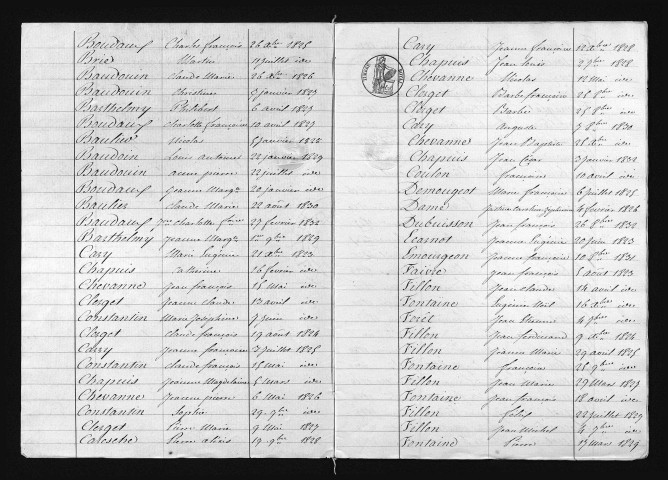 Boudaux Charles françois 26 Xbre 1825
Brié Martin 11 juillet idem
Baudouin Claude Marie 26 Xbre 1826
Baudouin Christine 5 janvier 1827
Barthelmy Philibert 6 avril 1827
Boudaux charlotte françoise 10 avril 1827
Baulier Nicolas 5 janvier
Baudoin Louis Antoine 22 janvier 1829
Baudouin anne pierre 22 juillet idem
Boudaux jeanne Margte 20 janvier idem
Baulier Claude Marie 22 août 1830
Boudaux charlotte 27 fevrier 1832
Barthelmy jeanne Margte 1er 9bre 1829
Cazy Marie Eugénie 21 Xbre 1823
Chapuis Catherine 26 fevrier idem
Chevanne jean françois 15 Mai idem
Clerget jeanne claude 13 avril idem
Constantin Marie Josephine 7 juin idem
Clerget claude françois 19 août 1824
Cazy jeanne francoise 2 juillet 1825
Constantin claude françois 15 Mai idem
Chapuis jeanne Magdelaine 5 Mars idem
Chevanne jeanne pierre 6 Mai 1826
Constantin Sophie 29 9bre idem
Clerget Pierre Marie 9 Mai 1827
Caleschè Pierre alexis 19 9bre 1828
Cazy jeanne françoise 12 Xbre 1828
Chapuis jean Louis 2 7bre 1828
Chevanne Nicolas 12 Mai idem
Clerget Barbe françoise 25 8bre idem
Clerget 25 8bre idem
Cazy Auguste 7 8bre 1830
Chevanne jean Baptiste 25 Xbre idem
Chapuis jean Cezar 3 janvier 1832
Coulon françoise 10 avril idem
Demougeot Marie françoise 6 juillet 1825
Dame 4 fevrier 1826
Dubuisson jean françois 26 8bre 1832
Ecarnot jeanne Eugénie 20 juin 1823
Emourgeon jeanne françoise 10 8bre 1831
Faivre jean françois 5 août 1823
Fillon jean claude 14 avril idem
Fontaine Eugène Noël 16 Xbre idem
Forèt jean Etienne 4 7bre idem
Fillon jean ferdinand 9 Xbre 1824
Fillon jeanne Marie 29 avril 1825
Fontaine françois 25 9bre idem
Fillon jean Marie 29 Mars 1827
Fontaine jean françois 18 avril idem
Fillon felix 22 juillet 1829
Fillon jean Michel 4 9bre idem
Fontaine Pierre 17 Mars 1829